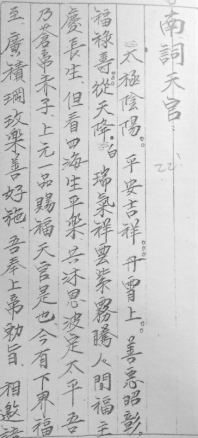 南詞天官：
太極陰陽。平安吉祥丹霄上。善惡昭彰。
福祿壽從天降。白 瑞氣祥雲紫霧騰人間福主
慶長生。但看四海生平樂共沐恩波定太平吾
乃蒼帝赤子上元一品賜福天官是也今有下東福
主廣積 玫樂善好施。吾奉上帝勅旨。相邀諸